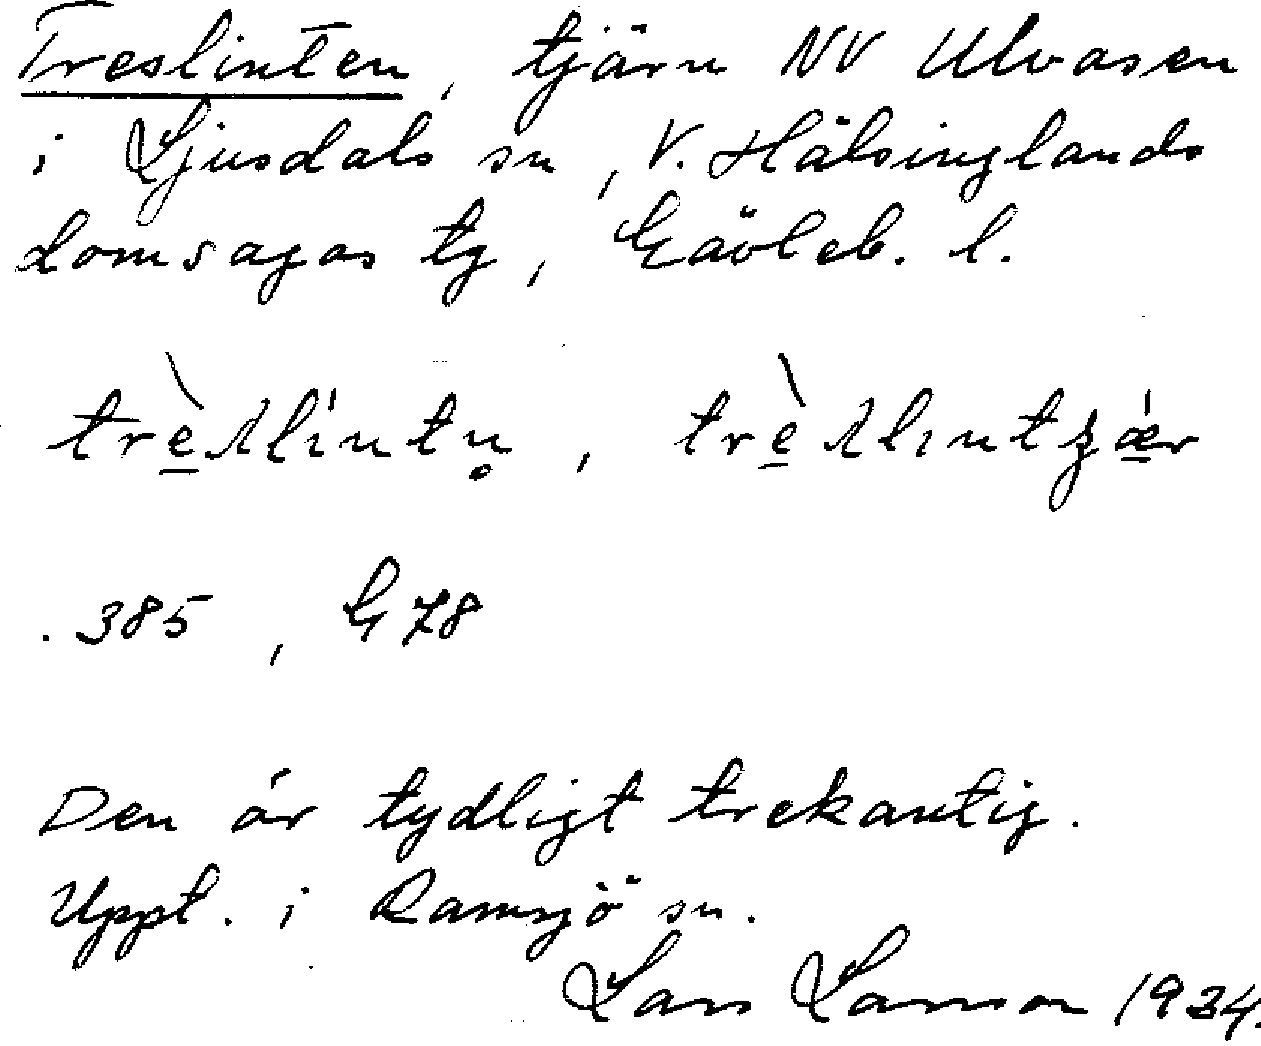 Treslinten, tjärn NV Ulvasen
i Ljusdals sn, V. Hälsinglands
domsagas tg, Gävleb. l.
385, G 78
Den är tydligt trekantig.
Uppt. i Ramsjö sn.
Lars Larsson 1934.